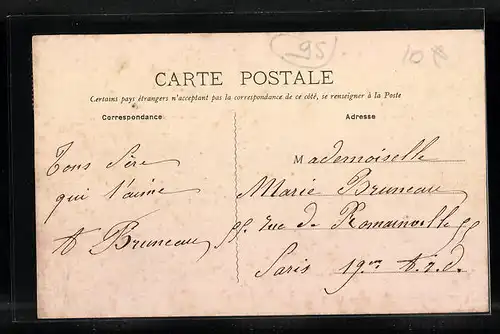 95
10
CARTE POSTALE
Certains pays étrangers n'acceptant pas la correspondance de ce côté, se renseigner à la Poste
Correspondance
Adresse
Mademoiselle
Ton père
qui t'aime
Marie Bruneau
A Bruneau
55 rue de Romainville 55
Paris 19me